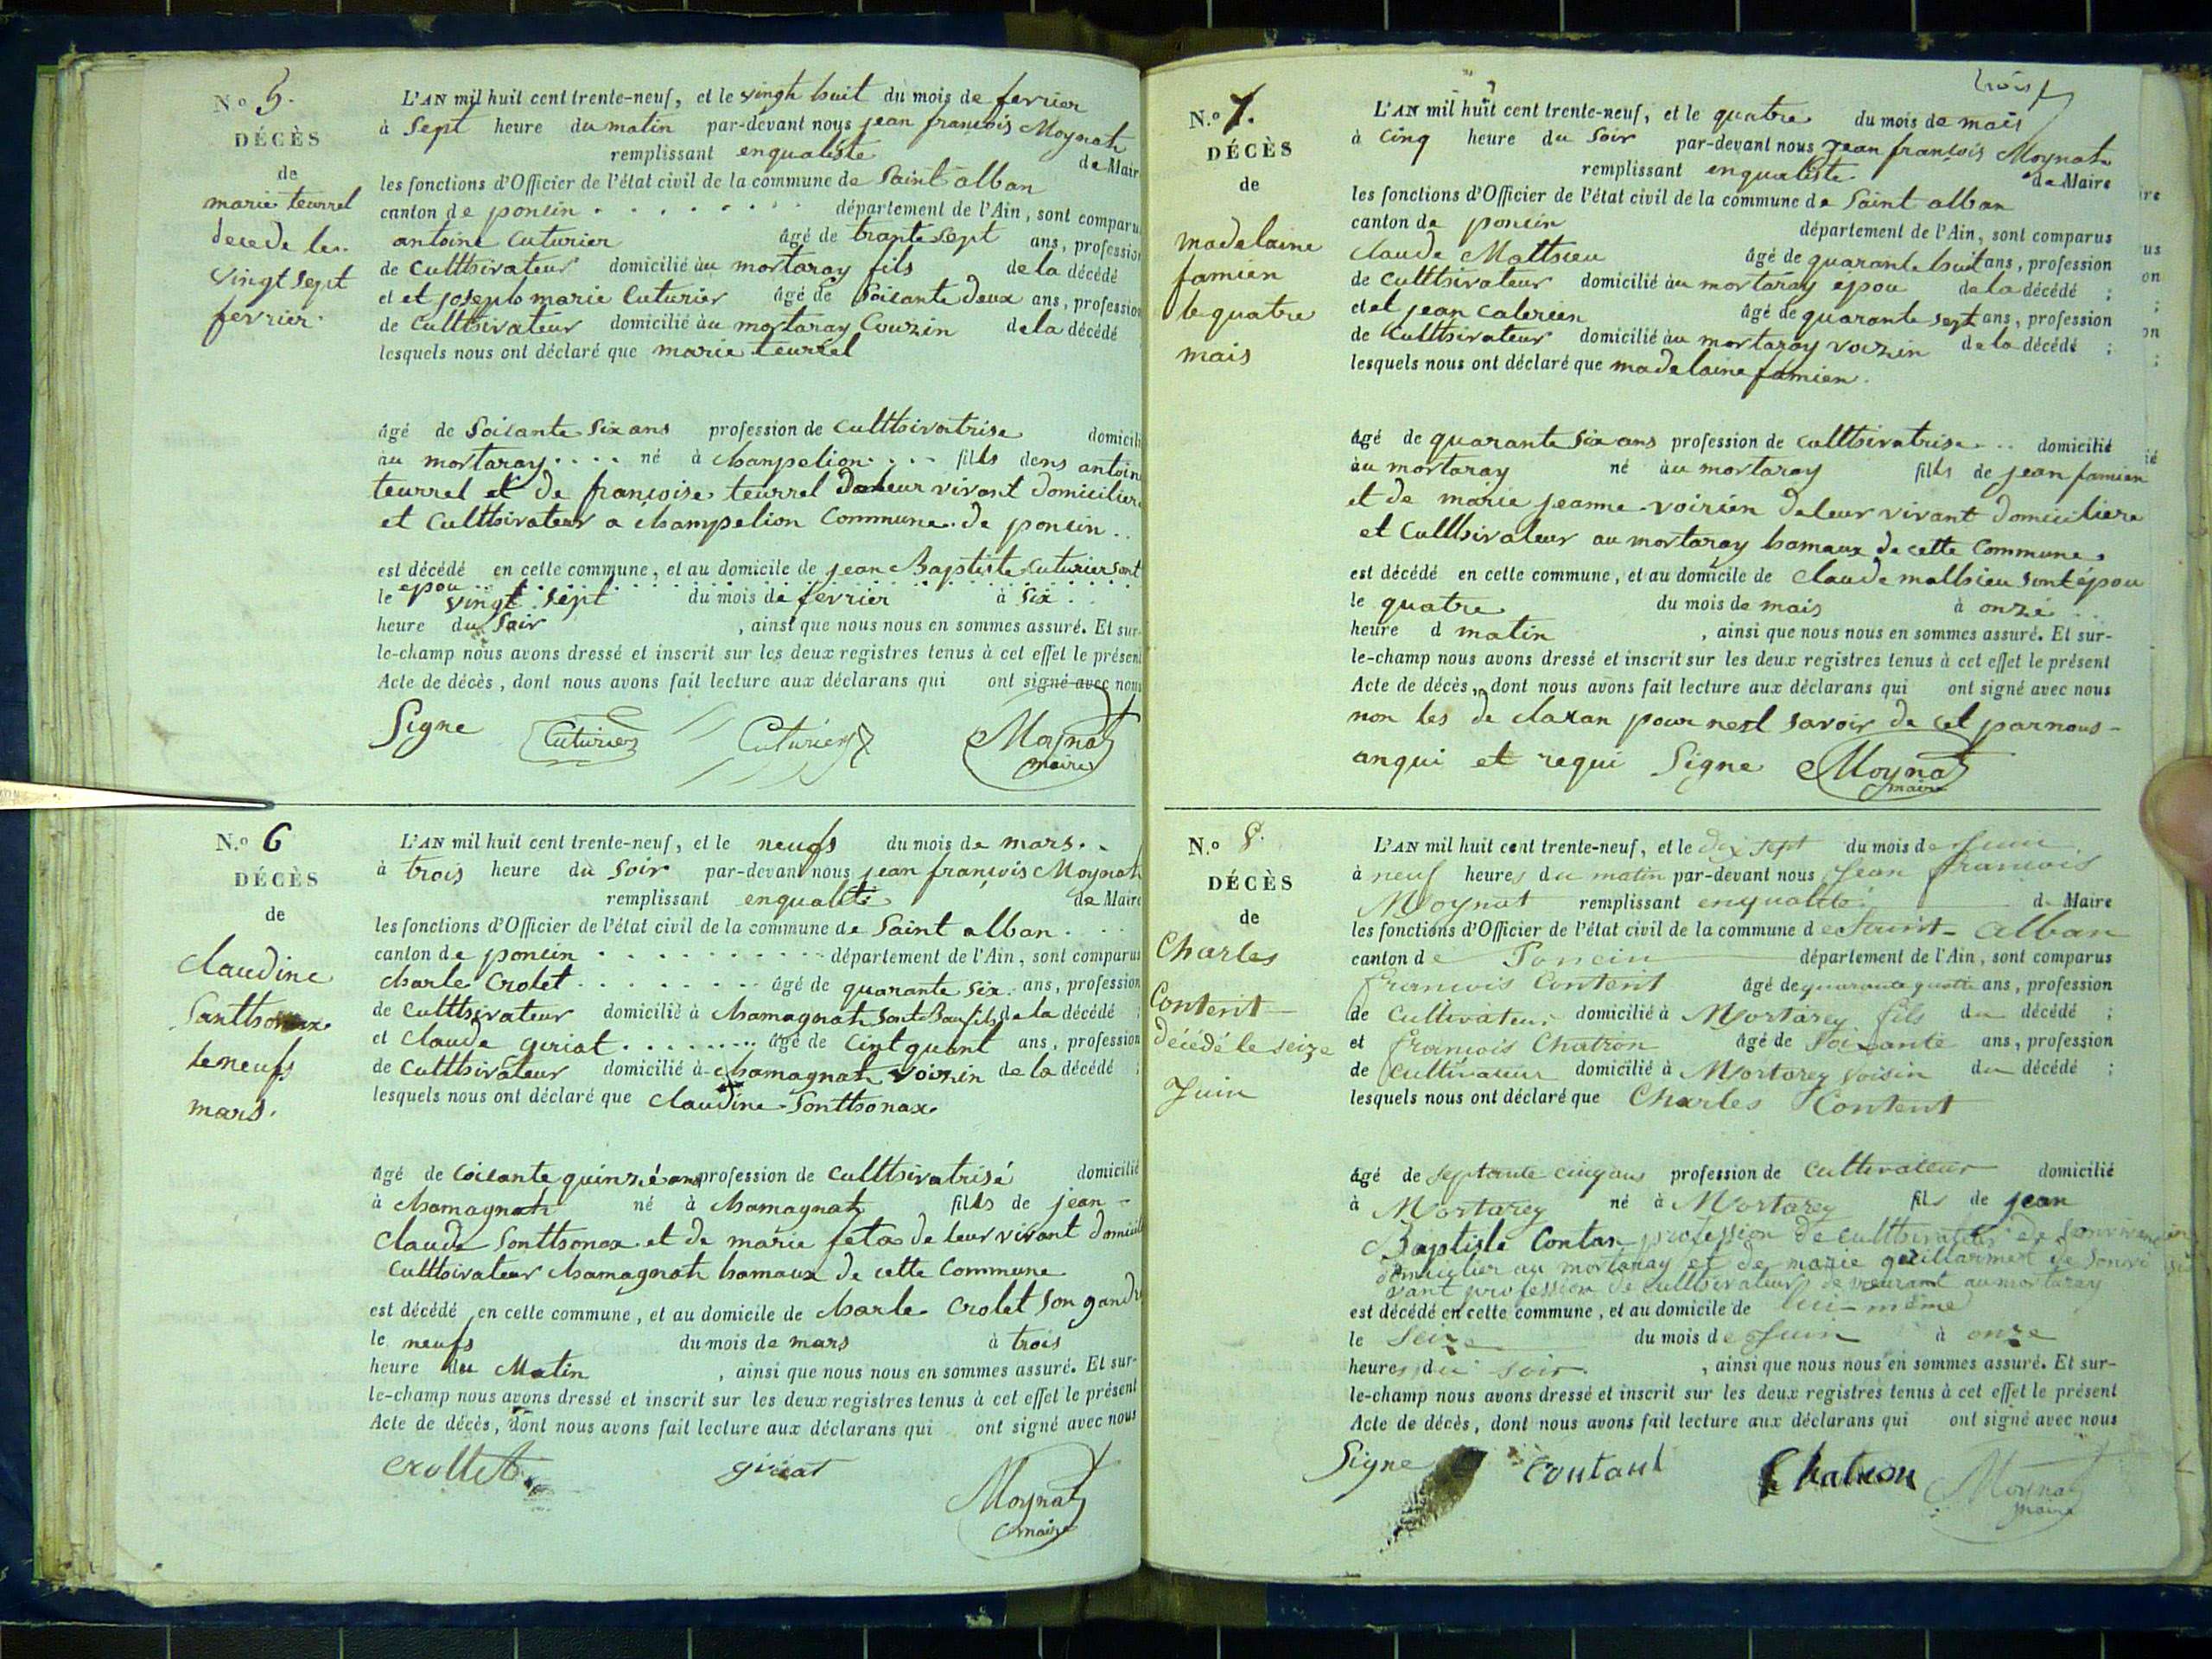 N.o 5.
DÉCÈS
de
marie teurrel
decede le
vingt sept
fevrier.
L'AN mil huit cent trente-neuf, et le vingt huit du mois de fevrier
à Sept heure du matin par-devant nous jean francois Moynat
remplissant enqualiste de Mair
les fonctions d'Officier de l'état civil de la commune de Saint alban
canton de poncin département de l'Ain, sont comparu
antoine Cuturier âgé de trante sept ans, profession
de Culthivateur domicilié àu mortaray fils de la décédé
et et joseph marie Cuturier âgé de Soisante deux ans, profession
de Culthivateur domicilié àu mortaray Couzin de la décédé
lesquels nous ont déclaré que marie teurrel
âgé de Soisante Six ans profession de Culthivatrise domicili
àu mortaray né à Chanpelion fills dens antoin
teurrel et de françoise teurrel deleur vivant domiciliere
et Culthivateur a Champelion Commune de poncin
est décédé en cette commune, et au domicile de jean Baptiste Cuturier Sont
epou
le vingt Sept du mois de fevrier à Six
heure du Soir , ainsi que nous nous en sommes assuré. Et sur-
le-champ nous avons dressé et inscrit sur les deux registres tenus à cet effet le présent
Acte de décès, dont nous avons fait lecture aux déclarans qui ont signé avec nous
Signe Cuturier Cuturier Moynat
maire
N.o 6
DÉCÈS
de
Claudine
Santhonax
le neufs
mars.
L'AN mil huit cent trente-neuf, et le neufs du mois de mars.
à trois heure du Soir par-devant nous jean françois Moynat
remplissant enqualite de Maire
les fonctions d'Officier de l'état civil de la commune de Saint alban
canton de poncin département de l'Ain, sont comparus
Charle Crolet âgé de quarante Six ans, profession
de Culthivateur domicilié à Chamagnat Sont Baufils de la décédé ;
et Claude giriat âgé de Cint quant ans, profession
de Culthivateur domicilié à Chamagnat voizin de la décédé ;
lesquels nous ont déclaré que Claudine Sonthonax
âgé de Coisante quinzé ans profession de Culthivatrisé domicilié
à Chamagnat né à Chamagnat fills de jean
Claude Sonthonax et de marie feta de leur vivant domicil
Culthivateur Chamagnat hamaux de cette Commune
est décédé en cette commune, et au domicile de Charle Crolet Son gandre
le neufs du mois de mars à trois
heure du Matin , ainsi que nous nous en sommes assuré. Et sur-
le-champ nous avons dressé et inscrit sur les deux registres tenus à cet effet le présent
Acte de décès, dont nous avons fait lecture aux déclarans qui ont signé avec nous
Crollet giriat Moynat
maire
trois
N.o 7.
DÉCÈS
de
madelaine
famien
le quatre
mais
L'AN mil huit cent trente-neuf, et le quatre du mois de mais
à Cinq heure du Soir par-devant nous jean françois Moynat
remplissant enqualiste de Maire
les fonctions d'Officier de l'état civil de la commune de Saint alban
canton de poncin département de l'Ain, sont comparus
Claude Mathieu âgé de quarante huit ans, profession
de Culthivateur domicilié àu mortaray epou de la décédé ;
et et jean Calerien âgé de quarante sept ans, profession
de Culthivateur domicilié àu mortaray voizin de la décédé ;
lesquels nous ont déclaré que madelaine famien.
âgé de quarante Six ans profession de Culthivatrise domicilié
àu mortaray né àu mortaray fills de jean famien
et de marie jeanne voirien deleur vivant domiciliere
et Culthivateur au mortaray hamaux de cette Commune.
est décédé en cette commune, et au domicile de Claude mathieu Sont épou
le quatre du mois de mais à onzé
heure d matin , ainsi que nous nous en sommes assuré. Et sur-
le-champ nous avons dressé et inscrit sur les deux registres tenus à cet effet le présent
Acte de décès, dont nous avons fait lecture aux déclarans qui ont signé avec nous
non les de claran pour nest savoir de cet par nous
anqui et requi Signe Moynat
maire
N.o 8.
DÉCÈS
de
Charles
Content
décédé le seize
Juin
L'AN mil huit cent trente-neuf, et le dix sept du mois de Juin
à neuf heures du matin par-devant nous Jean françois
Moynat remplissant enqualité de Maire
les fonctions d'Officier de l'état civil de la commune de Saint-Alban
canton de Poncin département de l'Ain, sont comparus
françois Content âgé de quarante quatre ans, profession
de Cultivateur domicilié à Mortarey fils du décédé ;
et françois Chatron âgé de Soixante ans, profession
de Cultivateur domicilié à Mortarey voisin du décédé ;
lesquels nous ont déclaré que Charles Content
âgé de septante cinq ans profession de Cultivateur domicilié
à Mortarey né à Mortarey fils de jean
Baptiste Contan profession de culthivateur de son vivan
domicilier au mortaray et de marie guilliarmet de Sonvi
vant profession de Culthivateur de meurant au mortaray
est décédé en cette commune, et au domicile de lui-même
le Seize du mois de Juin à onze
heures du soir , ainsi que nous nous en sommes assuré. Et sur-
le-champ nous avons dressé et inscrit sur les deux registres tenus à cet effet le présent
Acte de décès, dont nous avons fait lecture aux déclarans qui ont signé avec nous
Signe Contant Chatron Moynat
maire